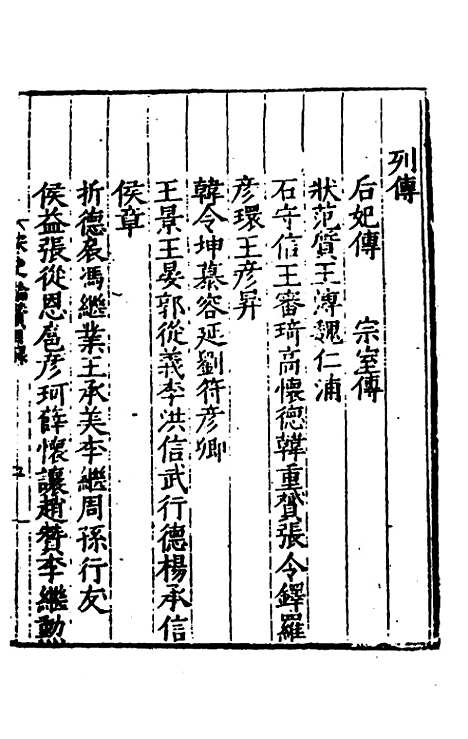 列傳
后妃傳　宗室傳
狀范質王溥魏仁浦
石守信王審琦高懷德韓重贇張令鐸羅
彥環王彥昇
韓令坤慕容延劉符彥卿
王景王晏郭從義李洪信武行德楊承信
侯章
折德扆馮繼業王承美李繼周孫行友
侯益張從恩扈彥珂薛懷讓趙贊李繼勳
宋史論贊目錄